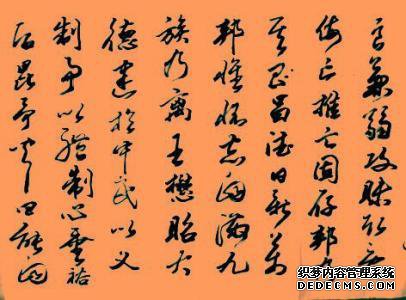 良兼弱攻昧取亂
侮亡推亡固存邦乃
其昌德日新萬
邦惟懷志自滿九
族乃離王懋昭大
德建於中民以义
制事以禮制心垂裕
后昆予聞曰能自
织梦内容管理系统
DEDECMS.COM